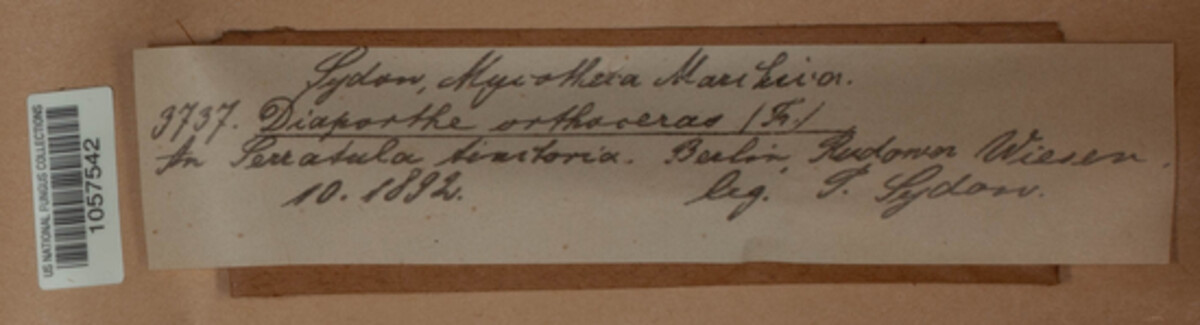 US NATIONAL FUNGUS COLLECTIONS
1057542
Sydow, Mycotheca Marchica.
3737. Diaporthe orthoceras (Fr.)
An Serratula tinctoria. Berlin, Rudower Wiesen.
10. 1892. leg. P. Sydow.